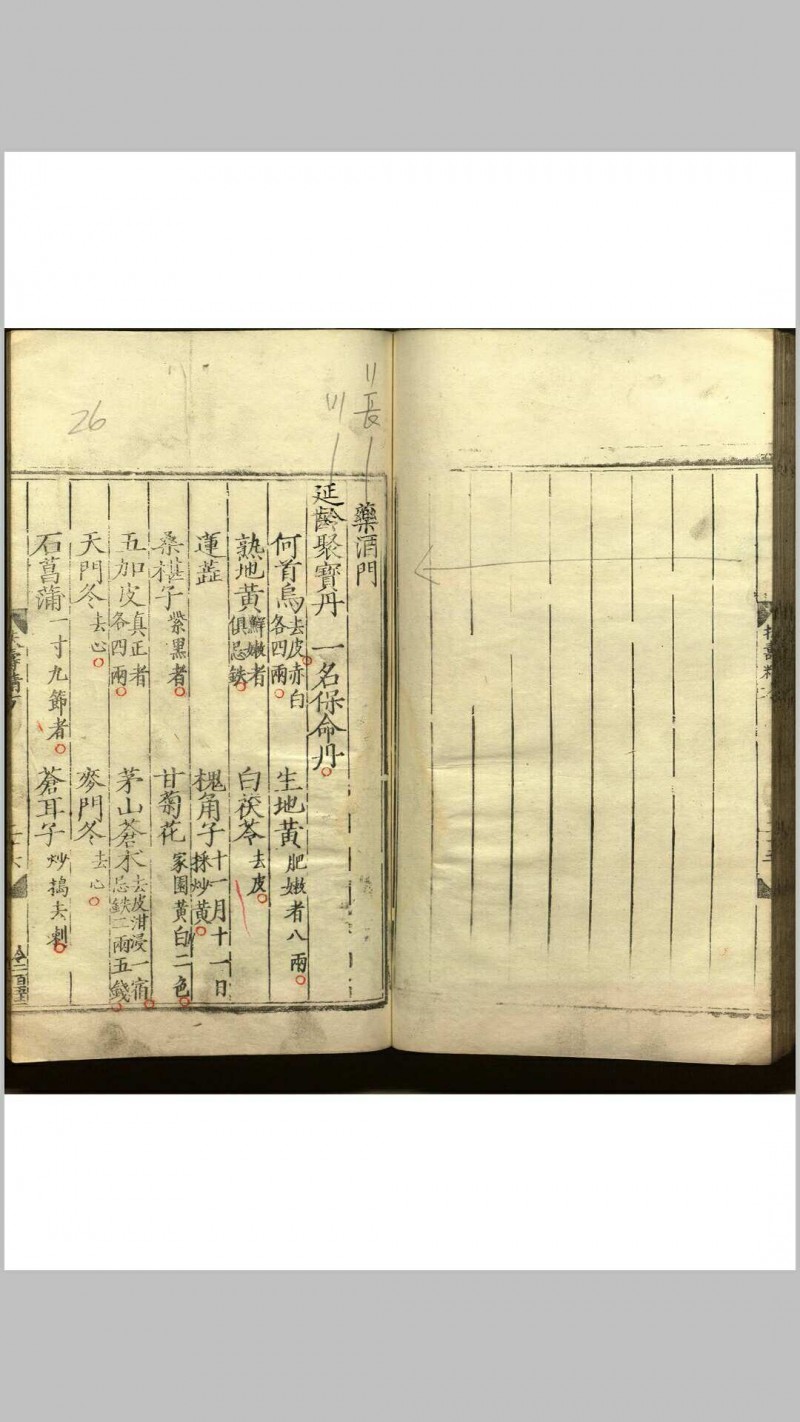 藥酒門
延齡聚寶丹 一名保命丹
何首烏 去皮赤白各四兩 生地黃 肥嫩者八兩
熟地黃 鮮嫩者俱忌鉄 白茯苓 去皮
蓮蕋 槐角子 十一月十一日採炒黃
桑椹子 紫黑者 甘菊花 家園黃白二色
五加皮 真正者各四兩 茅山蒼术 去皮泔浸一宿忌鉄二兩五錢
天門冬 去心 麥門冬 去心
石菖蒲 一寸九節者 蒼耳子 炒搗去刺
26